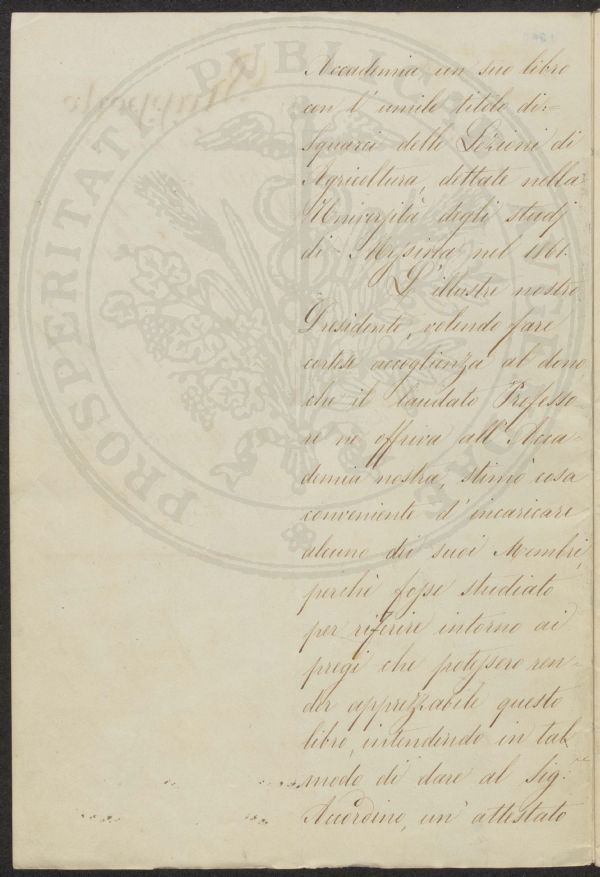 Accademia un suo libro
con l'umile titolo di:=
Squarci delle Lezioni di
Agricoltura, dettate nella
Università degli studj
di Messina nel 1861.
L'illustre nostro
Presidente, volendo fare
cortese accoglienza al dono
che il laudato Professo
re ne offriva all'Acca-
demia nostra, stimò cosa
conveniente d'incaricare
alcuno dei suoi Membri,
perché fosse studiato
per riferire intorno ai
pregi che potessero ren-
der apprezzabile questo
libro, intendendo in tal
modo di dare al Sig:re
un attestato
PROSPERITATI PVBLICAE